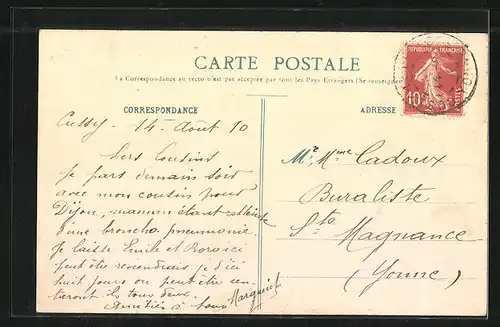 CARTE POSTALE
La Correspondance au recto n'est pas acceptée par tous les Pays Etrangers (Se renseigner
CORRESPONDANCE
ADRESSE
REPUBLIQUE FRANÇAISE
10
Cussy - 14 - Août 10
Cousins
Je pars demain soir
avec mon cousin pour
Dijon, maman étant atteinte
d'une broncho pneumonie.
Je laisse Emile et
peut être je d'ici
huit jours ou peut être
ils tous deux.
Amitiés à tous Marguerite
Mr. Mme Cadoux
Buraliste
Ste Magnance
(Yonne)